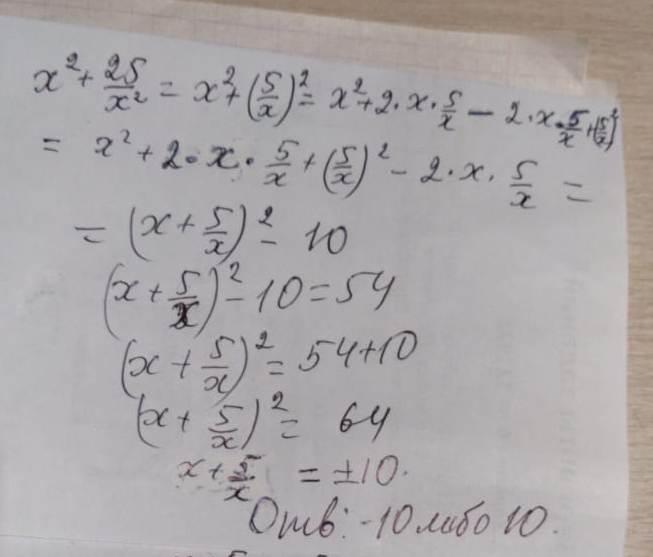 x² + 25/x² = x² + (5/x)² = x² + 2·x·5/x − 2·x·5/x + (5/x)²
= x² + 2·x·5/x + (5/x)² − 2·x·5/x =
= (x + 5/x)² − 10
(x + 5/x)² − 10 = 54
(x + 5/x)² = 54+10
(x + 5/x)² = 64
x + 5/x = ±10.
Отв: -10 либо 10.